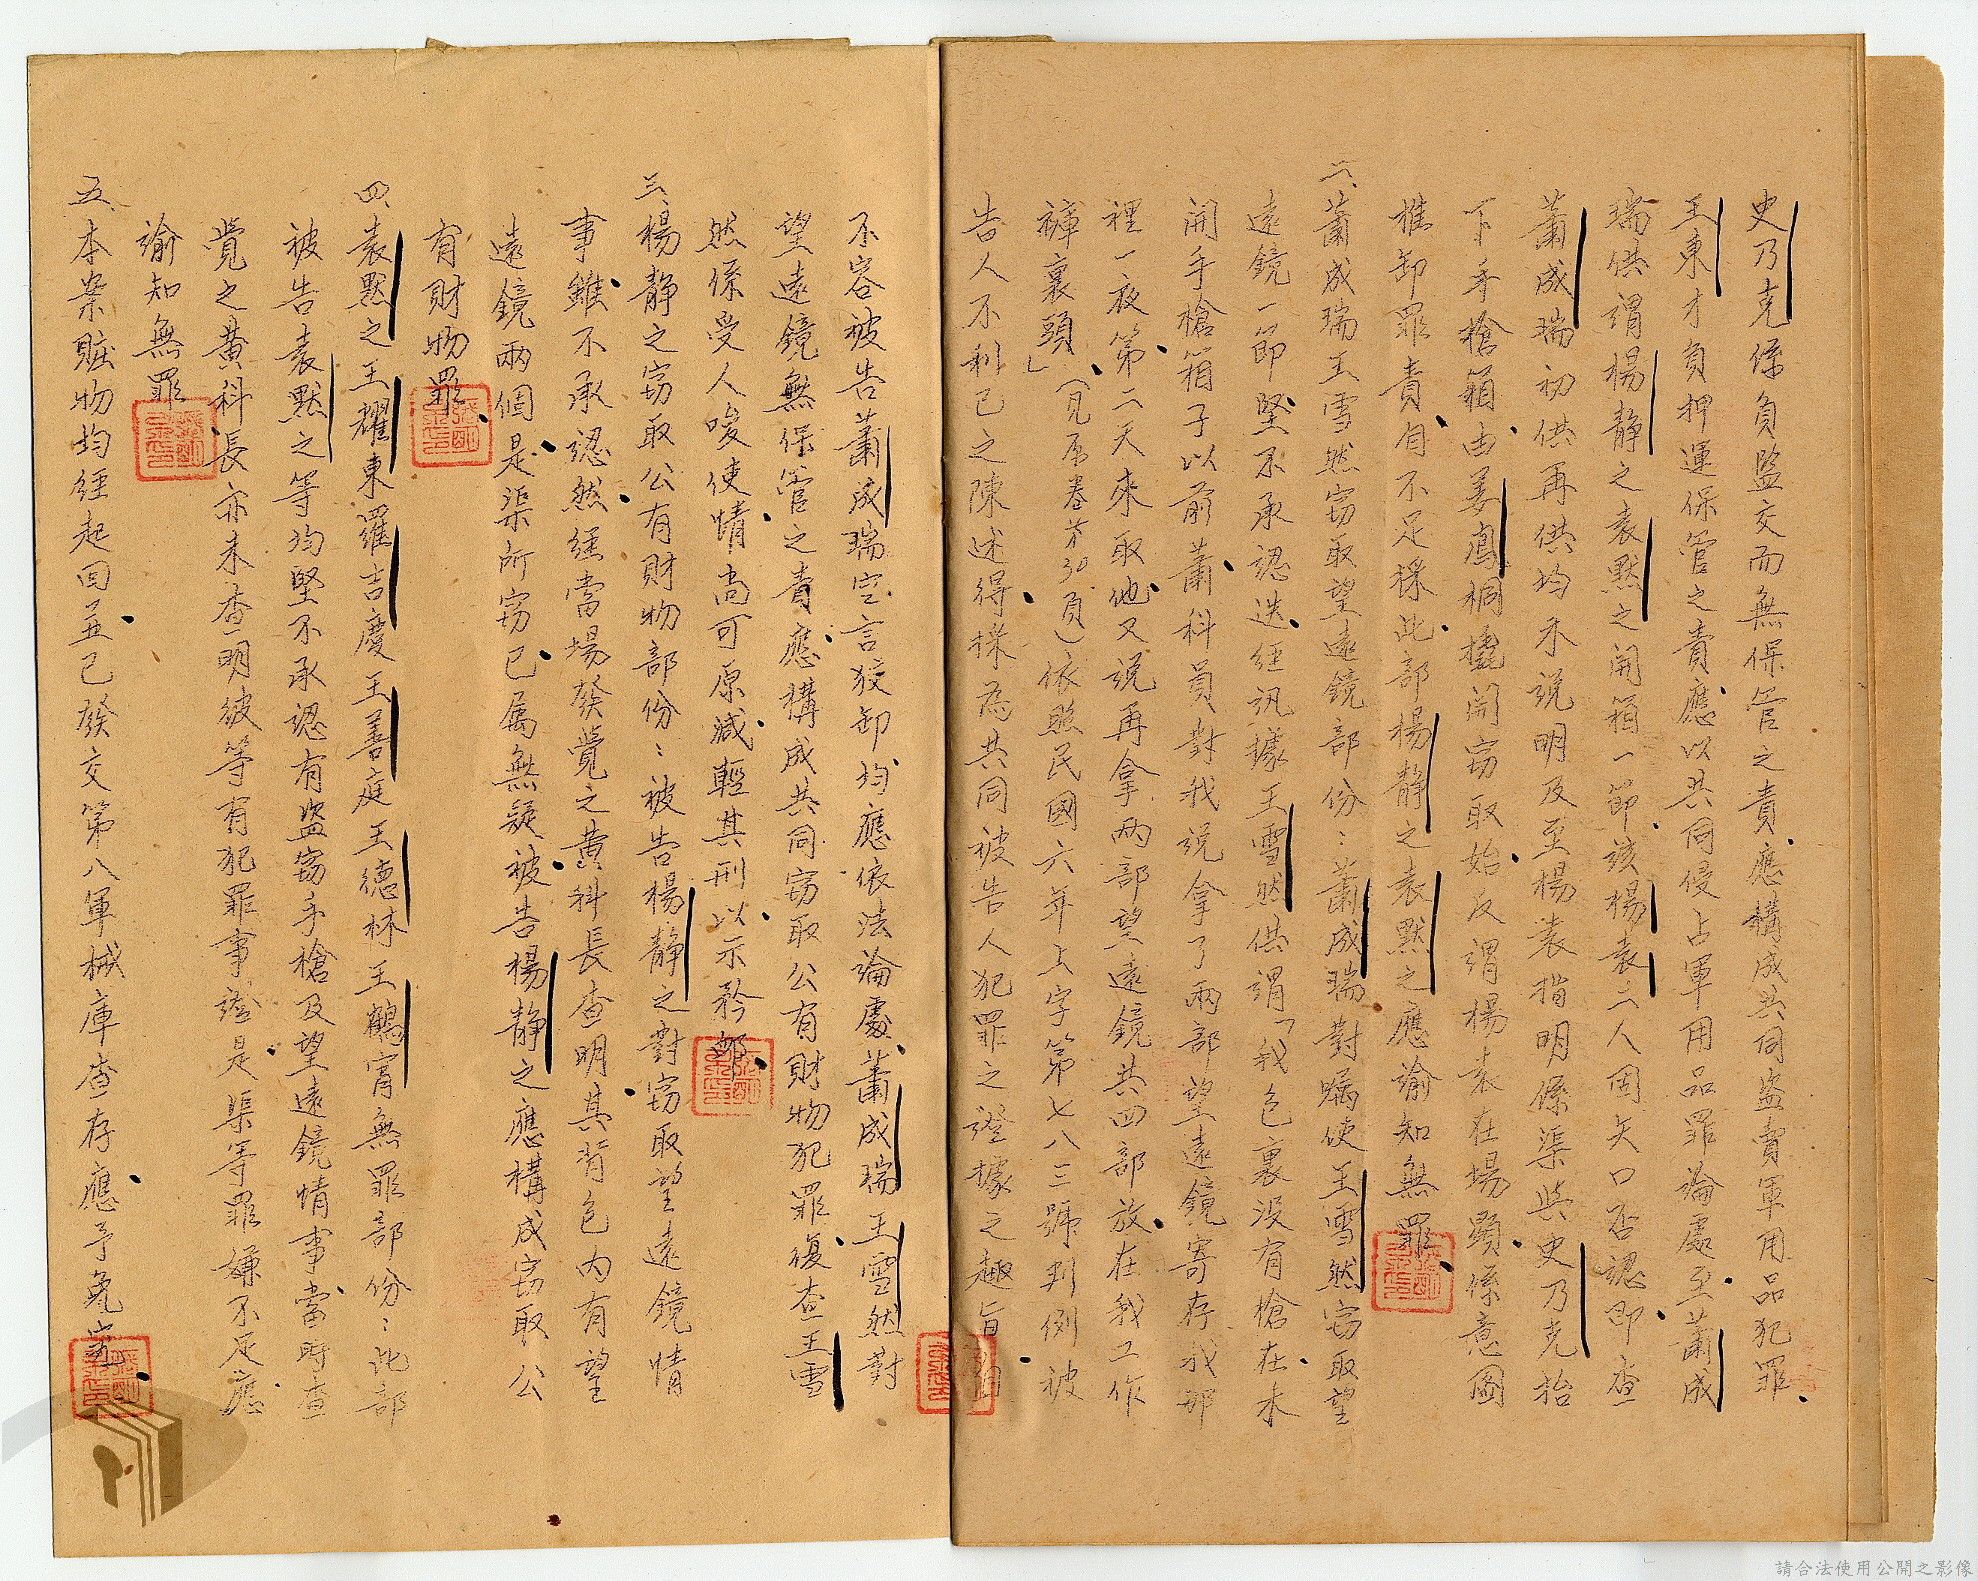 史乃克係負監交而無保管之責應構成共同盜賣軍用品犯罪
王東才負押運保管之責應以共同侵占軍用品罪論處至蕭成
瑞供謂楊靜之袁黙之開箱一節該楊袁二人固矢口否認即查
蕭成瑞初供再供均未說明及至楊袁指明係渠與史乃克抬
下手槍箱由姜鳳桐撬開窃取始反謂楊袁在場顯係意圖
推卸罪責自不足採此部楊靜之袁黙之應諭知無罪
二、蕭成瑞王雪然窃取望遠鏡部份：蕭成瑞對嘱使王雪然窃取望
遠鏡一節堅不承認迭經訊據王雪然供謂「我包裏没有槍在未
開手槍箱子以前蕭科員對我說拿了兩部望遠鏡寄存我那
裡一夜第二天來取他又說再拿两部望遠鏡共四部放在我工作
褲裏頭」（見原卷第30頁）依照民國六年上字第七八三號判例被
告人不利己之陳述得採為共同被告人犯罪之證據之趣旨自
不容被告蕭成瑞空言狡卸均應依法論處蕭成瑞王雪然對
望遠鏡無保管之責應構成共同窃取公有財物犯罪復查王雪
然係受人唆使情尚可原減輕其刑以示矜卹
三、楊靜之窃取公有財物部份：被告楊靜之對窃取望遠鏡情
事雖不承認然經當場發覺之黄科長查明其背包内有望
遠鏡兩個是渠所窃已属無疑被告楊靜之應構成窃取公
有財物罪
四、袁黙之王耀東羅吉慶王善庭王德林王鶴宵無罪部份：此部
被告袁黙之等均堅不承認有盜窃手槍及望遠鏡情事當時查
覺之黄科長亦未查明彼等有犯罪事證是渠等罪嫌不足應
諭知無罪
五、本案賍物均經起回並已發交第八軍械庫查存應予免究
請合法使用公開之影像